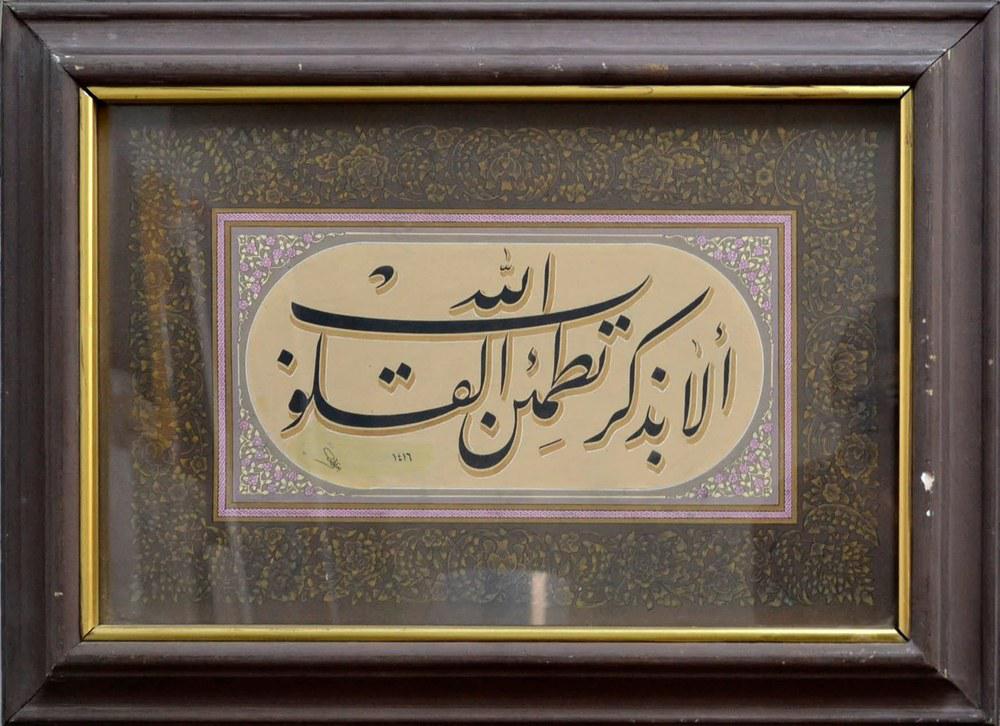 ألا بذكر الله تطمئن القلوب
١٤١٦